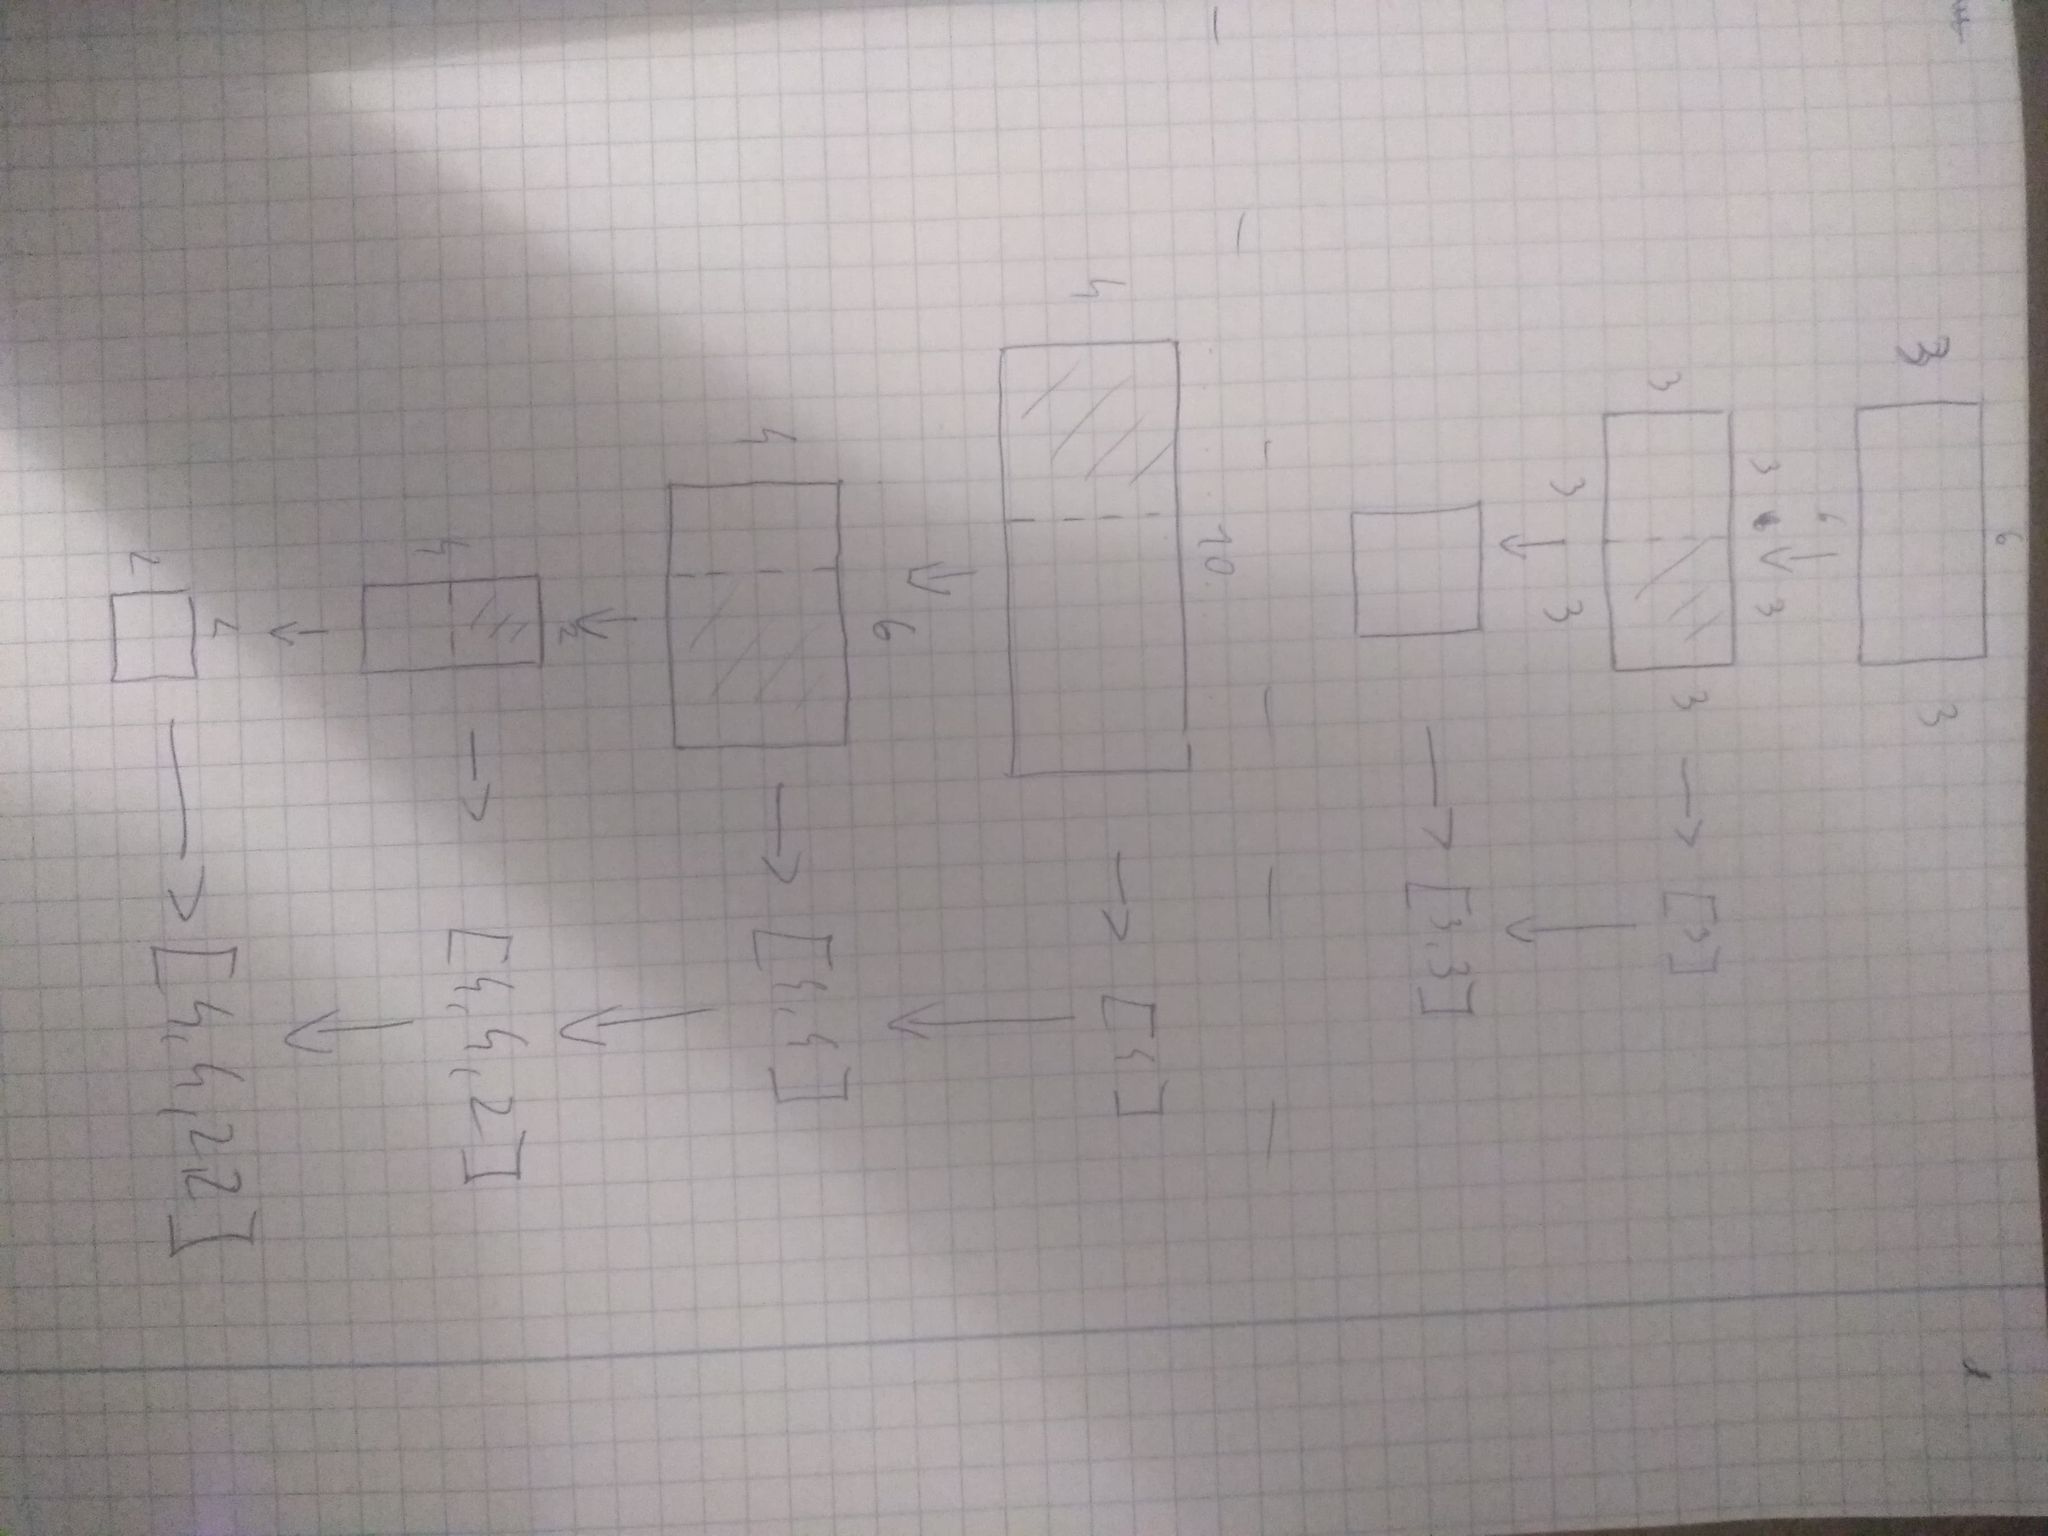 6
3 3
6
3 3
3 3 [3]
3 3
[3,3]
10
4 [4]
6
4 [4,4]
2
4 [4,4,2]
2 [4,4,2,2]